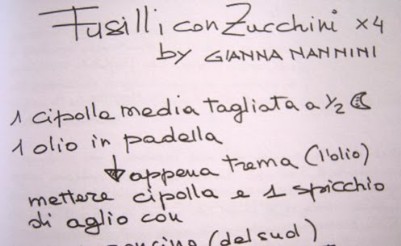 Fusilli con Zucchini x4
by GIANNA NANNINI
1 cipolla media tagliata a ½
1 olio in padella
appena trema (l'olio)
mettere cipolla e 1 spicchio
di aglio con
(del sud)